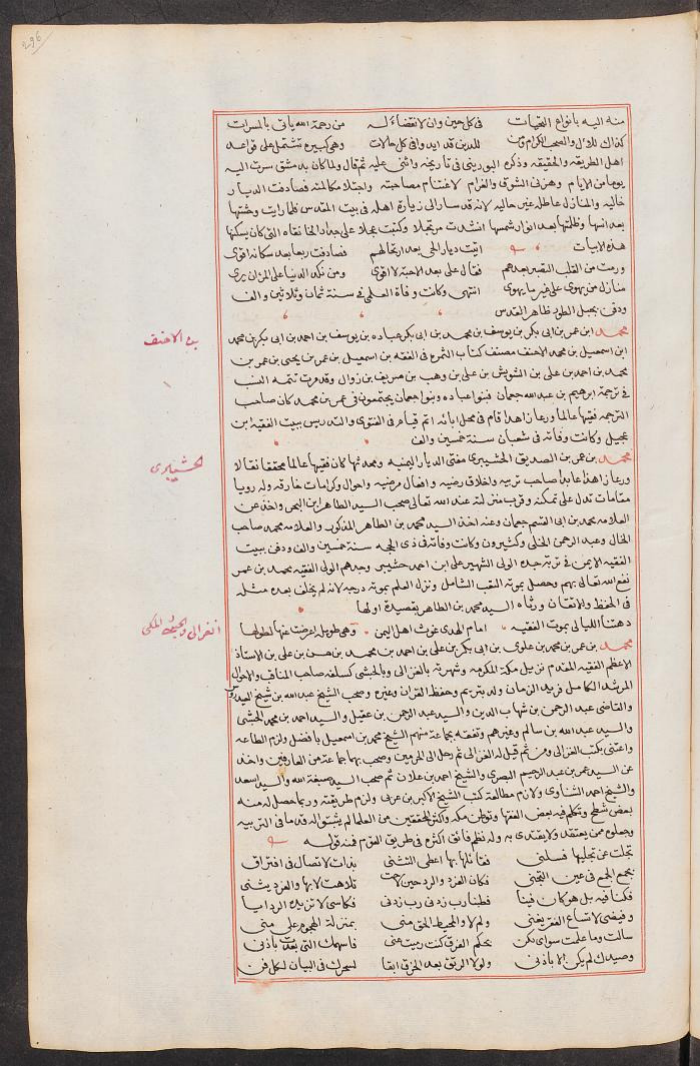 296
منه اليه بانواع التحيات في كل حين وان لا نقضاء له من رحمة الله ياتي بالمسرات
كذاك للال والصحب الكرام ومن للدين قد ايد وافى كل حالات وهي كبيرة تشتمل على قواعد
اهل الطريقه والحقيقه وذكره البوريني في تاريخه واثنى عليه ثم قال ولما كان بدمشق سرت اليه
يوما من الايام وهزني الشوق والغرام لاغتنام مصاحبته واجتلاء مكالمته فصادفت الديار
خاليه والمنازل عاطله غير حاليه لانه قد سار الى زيارة اهله في بيت المقدس فلما رايت وحشتها
بعد انسها وظلمتها بعد انوار شمسها انشدت مرتجلا وكتبت عجلا على جدار الخانقاه التي كان يسكنها
هذه الابيات اتيت ديار الحي بعد ارتحالهم فصادفت ربعا بعد سكانه اقوى
ورمت من القلب التصبر بعدهم فقال على بعد الاحبة لا اقوى ومن نكد الدنيا على المرء ان يرى
منازل من يهوى على غير ما يهوى انتهى وكانت وفاة العلمي في سنة ثمان وثلاثين والف
ودفن بجبل الطور ظاهر القدس
بن الاحنف
محمد ابن عمر بن ابي بكر بن يوسف بن محمد بن ابي بكر عباده بن يوسف بن احمد بن ابي بكر بن محمد
ابن اسمعيل بن محمد الاحنف مصنف كتاب الثمره في الفقه بن اسمعيل بن عمر بن يحيى بن عمر بن
محمد بن احمد بن علي بن الشويش بن علي بن وهب بن صريف بن زوال وقد مرت تتمة النسب
في ترجمة ابرهيم بن عبد الله جمان فبنوا عباده وبنوا جمان يجتمعون في عمر بن محمد كان صاحب
الترجمه فقيها عالما ورعا زاهدا قام في محل ابائه اتم قيام في الفتوى والتدريس ببيت الفقيه ابن
عجيل وكانت وفاته في شعبان سنة خمسين والف
الحشيبري
محمد بن عمر بن الصديق الحشيبري مفتي الديار اليمنيه ومحدثها كان فقيها عالما محققا نقالا
ورعا زاهدا عابدا صاحب تربيه واخلاق رضيه وافعال مرضيه واحوال وكرامات خارقه وله رويا
مقامات تدل على تمكنه وقرب منزلته عند الله تعالى صحب السيد الطاهر ابن البحر واخذ عن
العلامه محمد بن ابي القسم جمان وعنه اخذ السيد محمد بن الطاهر المذكور والعلامه محمد صاحب
الخال وعبد الرحمن الخلي وكثيرون وكانت وفاته في ذي الحجه سنة خمسين والف ودفن ببيت
الفقيه الايمن في تربة جده الولي الشهير علي ابن احمد حشيبر وجدهم الولي الفقيه محمد بن عمر
نفع الله تعالى بهم وحصل بموته النقب الشامل ونزل العلم بموته درجه لانه لم يخلف بعده مثله
في الحفظ والاتقان ورثاه السيد محمد بن الطاهر بقصيدة اولها
دهتنا الليالي بموت الفقيه امام الهدى غوث اهل اليمن وهي طويله اعرضت عنها لطولها
الغزالي والحبشي المكي
محمد بن عمر بن محمد بن علوي بن ابي بكر بن علي بن احمد بن محمد بن حسن بن علي بن الاستاذ
الاعظم الفقيه المقدم نزيل مكة المكرمه وشهرته بالغزالي وبالحبشي كسلفه صاحب المناقب والاحوال
المرشد الكامل فريد الزمان ولد بتريم وحفظ القران وغيره وصحب الشيخ عبد الله بن شيخ العيدروس
والقاضي عبد الرحمن بن شهاب الدين والسيد عبد الرحمن بن عقيل والسيد احمد بن محمد الحبشي
والسيد عبد الله بن سالم وغيرهم وتفقه بجماعة منهم الشيخ محمد بن اسمعيل بافضل ولزم الطاعه
واعتنى بكتب الغزالي ومن ثم قيل له الغزالي ثم رحل الى الحرمين وصحب بهما جماعة من العارفين واخذ
عن السيد عمر بن عبد الرحيم البصري والشيخ احمد بن علان ثم صحب السيد صبغة الله والسيد اسعد
والشيخ احمد الشناوي ولازم مطالعة كتب الشيخ الاكبر بن عربي ولزم طريقته وربما حصل له منه
بعض شطح وتكلم فيه بعض الفقها وتوطن مكه واكثر المحققين من العلما لم يثبتوا له قدما في التربيه
وجعلوه ممن يعتقد ولا يقتدى به وله نظم فائق اكثره في طريق القوم فمنه قوله
تجلت عن تجليها فسلني فقائلها بها اعطى التثني بذات لا تصال في افتراق
بجمع الجمع في عين التجني فكان الفرد والرد حين تلاهت لابها والفرد يثني
فكنا فيه بل هو كان فينا فطبنا رب زدني رب زدني فكاسي لا تزيده الردايا
وفيضي لاتساع الفقر يغني ولم لا والمحيط الحق مني بمنزلة الهجوم على مني
سالت وما علمت سواي لكن بحكم الفرق كنت رميت عني فاسهمك التي بعثت باذني
وصيدك لم يكن الا باذني ولولا الريق بعد الخرق ابقا لسحرك في البيان لكل فن